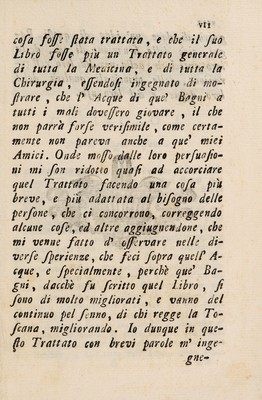 VII
cosa fosse stata trattata, e che il suo
Libro fosse più un Trattato generale
di tutta la Medicina, e di tutta la
Chirurgia, essendosi ingegnato di mo-
strare, che l' Acque di que' Bagni a
tutti i mali dovessero giovare, il che
non parrà forse verisimile, come certa-
mente non pareva anche a que' miei
Amici. Onde mosso dalle loro persuasio-
ni mi son ridotto quasi ad accorciare
quel Trattato facendo una cosa più
breve, e più adattata al bisogno delle
persone, che ci concorrono, correggendo
alcune cose, ed altre aggiugnendone, che
mi venne fatto d' osservare nelle di-
verse sperienze, che feci sopra quell' A-
cque, e specialmente, perchè que' Ba-
gni, dacchè fu scritto quel Libro, si
sono di molto migliorati, e vanno del
continuo pel senno, di chi regge la To-
scana, migliorando. Io dunque in que-
sto Trattato con brevi parole m' inge-
gne-